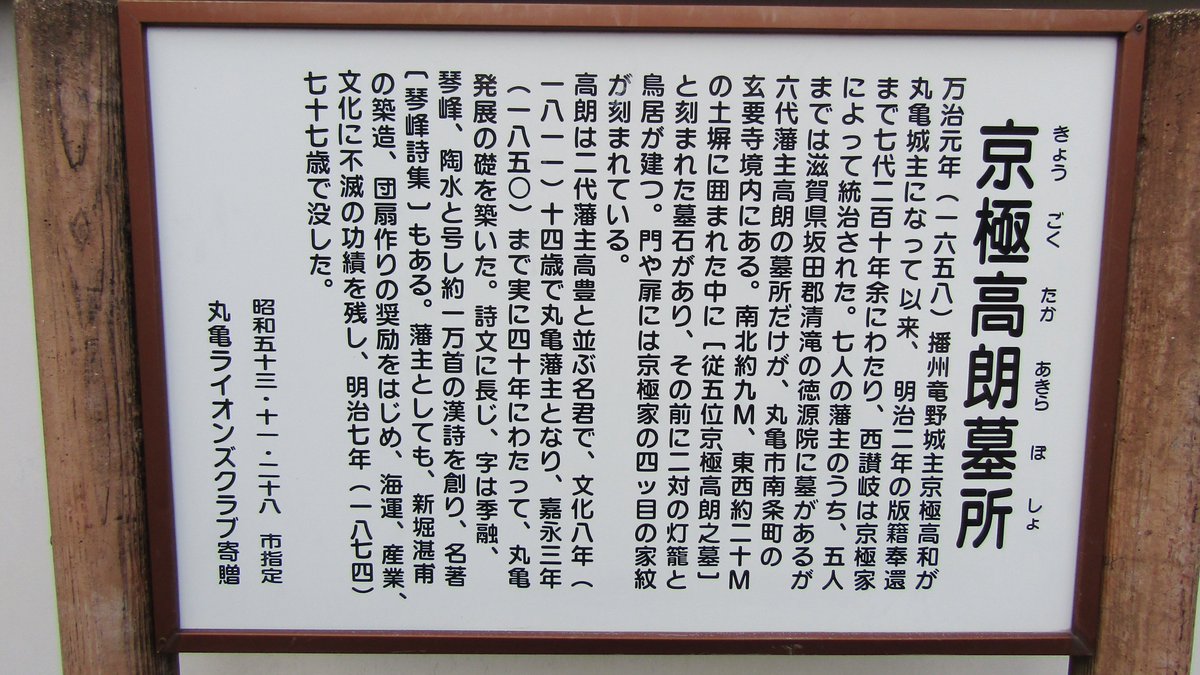 京極高朗墓所
きょう ごく たか あきら ぼ しょ
万治元年（一六五八）播州竜野城主京極高和が
丸亀城主になって以来、明治二年の版籍奉還
まで七代二百十年余にわたり、西讃岐は京極家
によって統治された。七人の藩主のうち、五人
までは滋賀県坂田郡清滝の徳源院に墓があるが
六代藩主高朗の墓所だけが、丸亀市南条町の
玄要寺境内にある。南北約九M、東西約二十M
の土塀に囲まれた中に［従五位京極高朗之墓］
と刻まれた墓石があり、その前に二対の灯籠と
鳥居が建つ。門や扉には京極家の四ッ目の家紋
が刻まれている。
高朗は二代藩主高豊と並ぶ名君で、文化八年（
一八一一）十四歳で丸亀藩主となり、嘉永三年
（一八五〇）まで実に四十年にわたって、丸亀
発展の礎を築いた。詩文に長じ、字は季融、
琴峰、陶水と号し約一万首の漢詩を創り、名著
［琴峰詩集］もある。藩主としても、新堀湛甫
の築造、団扇作りの奨励をはじめ、海運、産業、
文化に不滅の功績を残し、明治七年（一八七四）
七十七歳で没した。
昭和五十三・十一・二十八　市指定
丸亀ライオンズクラブ寄贈